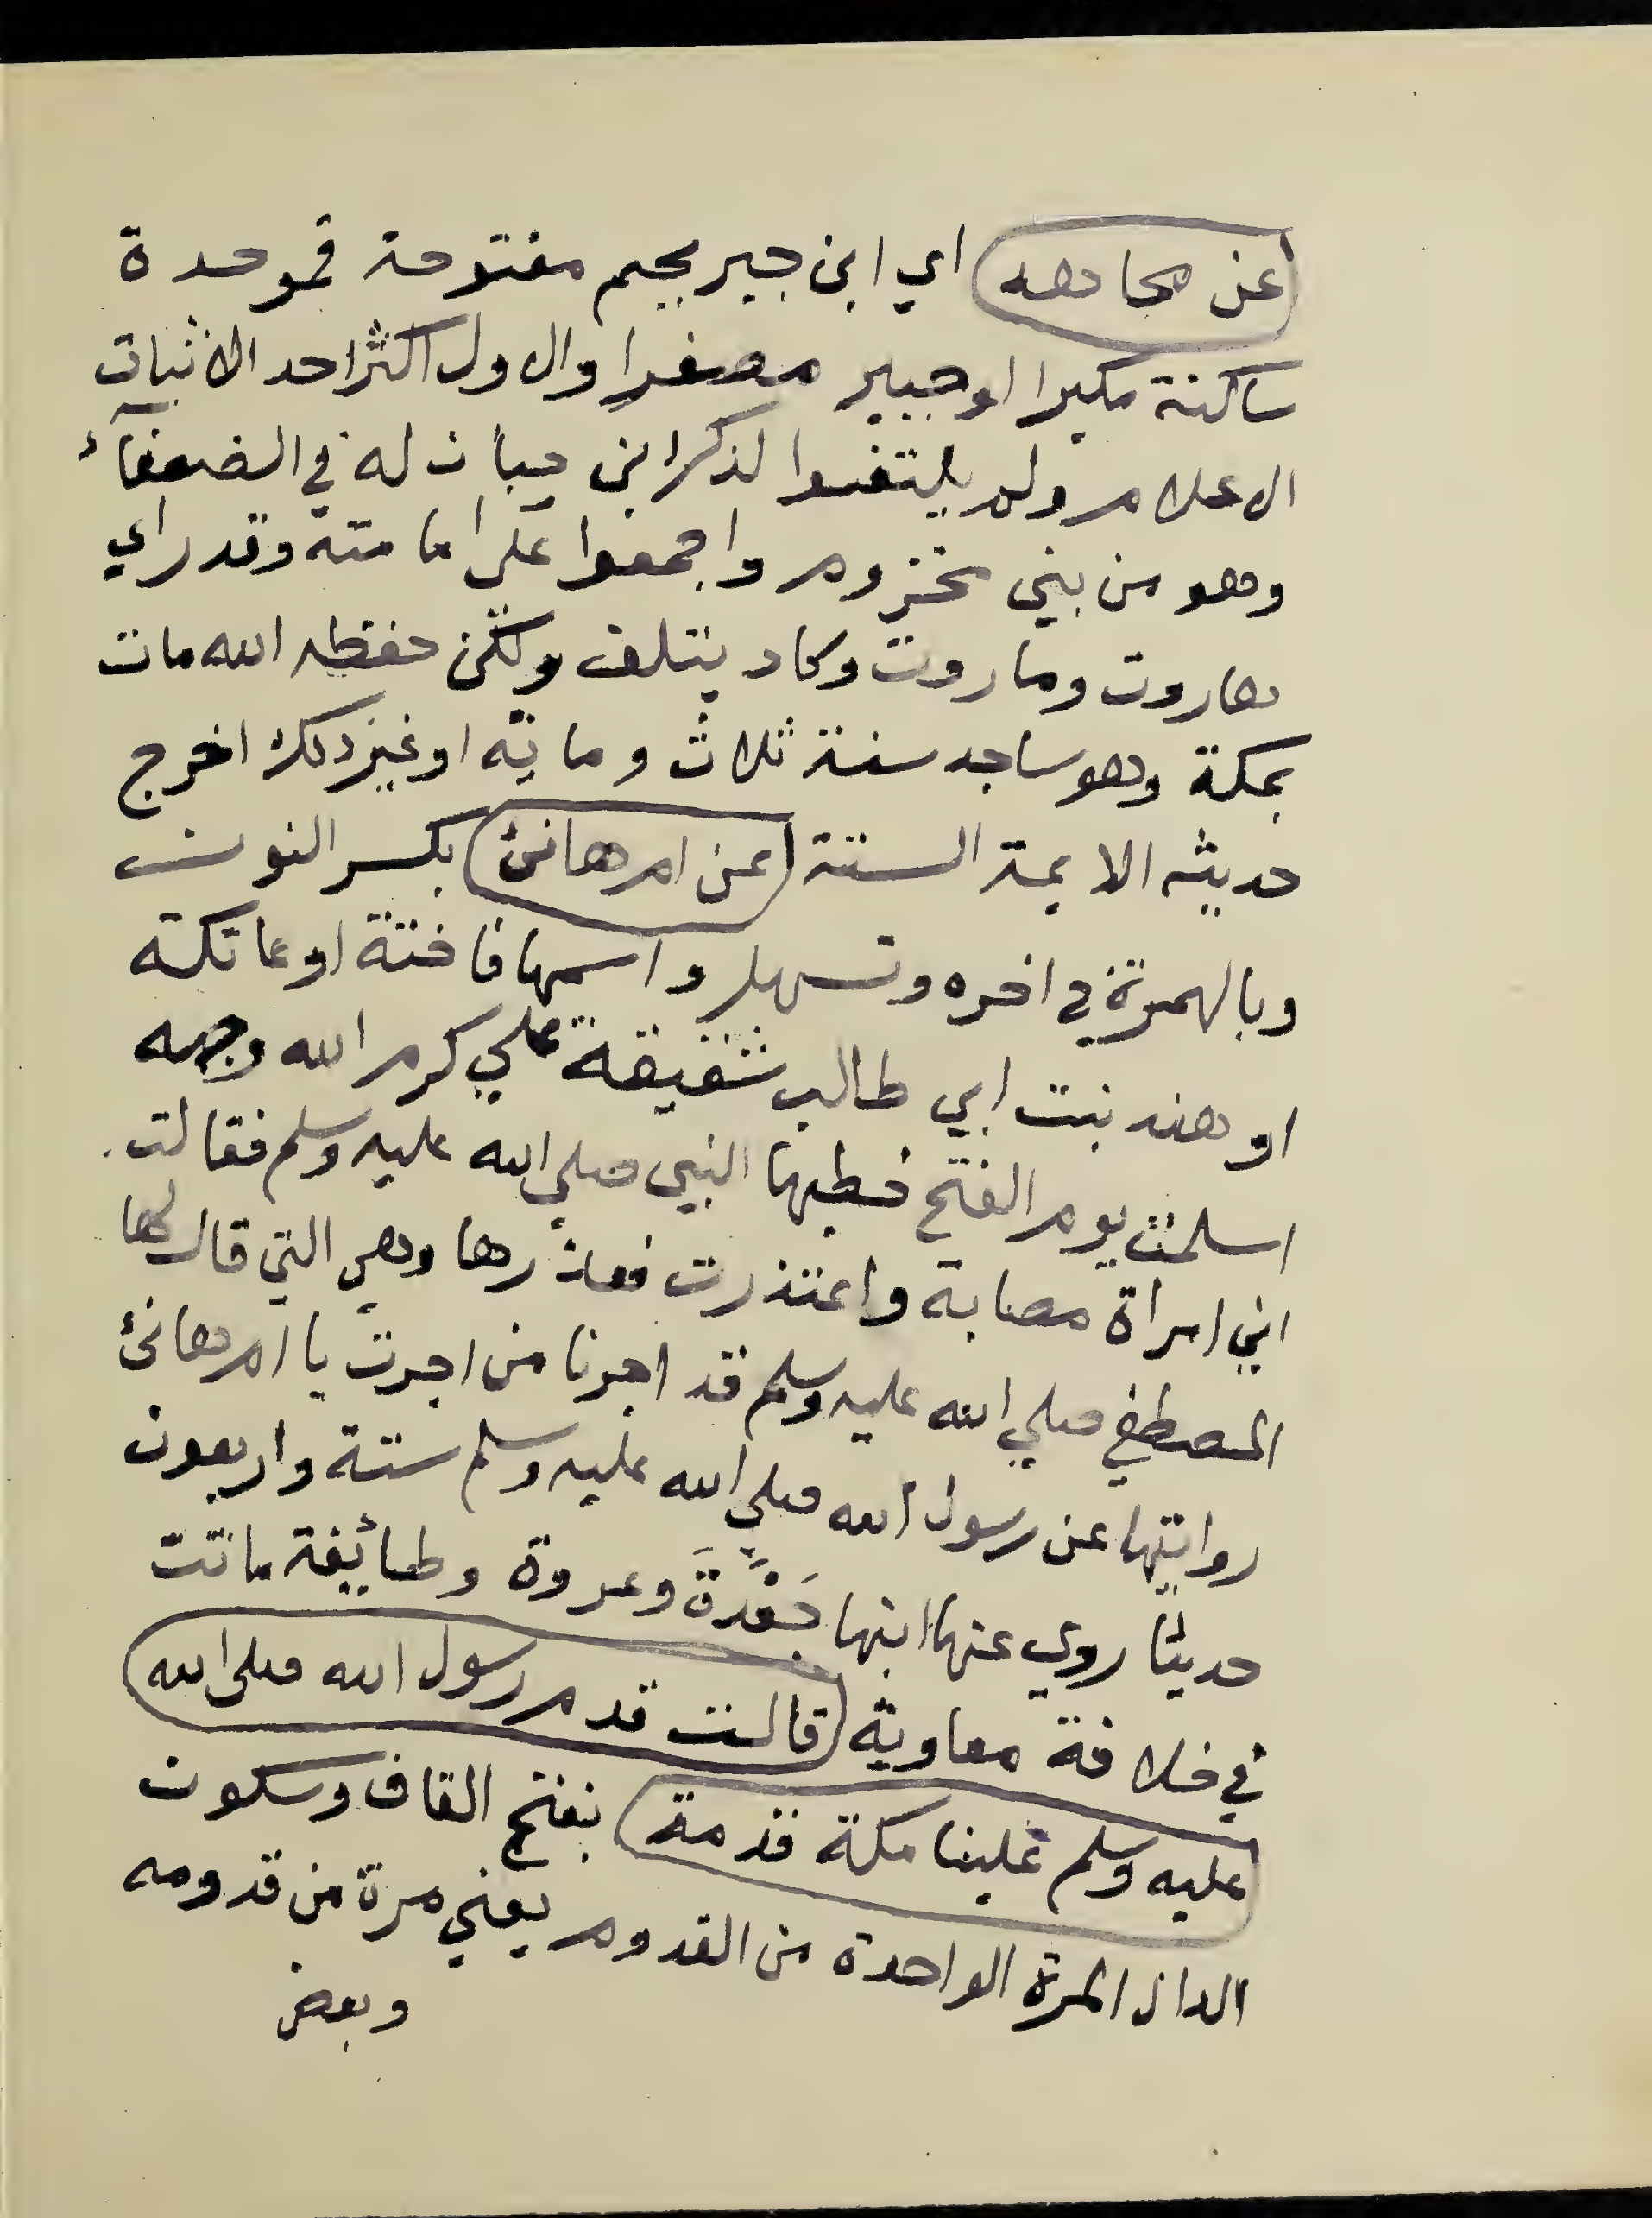 (عن مجاهد) اي ابن جبر بجيم مفتوحة فموحدة
ساكنة مكبرا او جبير مصغرا والاول اكثر احد الاثبات
الاعلام ولم يلتفتوا لذكر ابن حبان له في الضعفآء
وهو من بني مخزوم واجمعوا على امامته وقد راي
هاروت وماروت وكاد يتلف ولكن حفظه الله مات
بمكة وهو ساجد سنة ثلاث وماية او غير ذلك اخرج
حديثه الايمة الستة (عن ام هانئ) بكسر النون
وبالهمزة في اخره وتسهل واسمها فاختة او عاتكة
او هند بنت ابي طالب شقيقة علي كرم الله وجهه
اسلمت يوم الفتح خطبها النبي صلي الله عليه وسلم فقالت
اني امراة مصابة واعتذرت فعذرها وهي التي قال لها
المصطفي صلي الله عليه وسلم قد اجرنا من اجرت يا ام هانئ
روايتها عن رسول الله صلي الله عليه وسلم ستة واربعون
حديثا روي عنها ابنها جَعْدَةَ وعروة وطائيفة ماتت
في خلافة معاوية (قالت قدم رسول الله صلى الله
عليه وسلم علينا مكة قدمة) بفتح القاف وسكون
الدال المرة الواحدة من القدوم يعني مرة من قدومه
وبعض